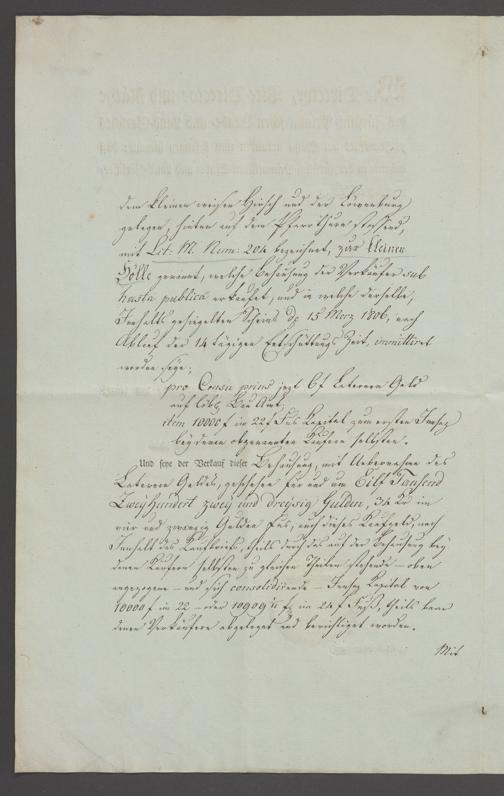 dem kleinen weisen Hirsch und der Löwenburg
gelegen, hinten auf den Pfarrthurn stosend,
mit Lit: M. Num: 204 bezeichnet, zur kleinen
Hölle genannt, welche Behausung der Verkäufer sub
hasta publica erkaufet, und in welche derselbe,
Inhalts gesiegelten Scheins de 15 Merz 1806, nach
Ablauf der 14 tägigen Entschüttungs Zeit, immittiret
worden seye;
pro Censu prius jezt 6f Laternen Geld
auf löbl. Bau Amt;
item 10000 f im 22 f Fus Kapital zum ersten Insaz
bey denen obgenannten Käufern selbsten.
Und seye der Verkauf dieser Behausung, mit Uebernahme des
Laternen Geldes, geschehen für und um Eilf Tausend
Zwey hundert zwey und dreysig Gulden, 34 Kr im
vier und zwanzig Gulden Fus, auch dieses Kaufgeld, nach
Innhalt des Kaufbriefs, theils durch das auf der Behausung bey
denen Käufern selbsten zu gleichen Theilen stehende – oben
angezogene – und sich consolidirende – Insaz Kapital von
10000 f im 22 – oder 10909 1/11 f im 24 f Fuß, theils baar
denen Verkäufern abgeleget und berichtiget worden.
Mit